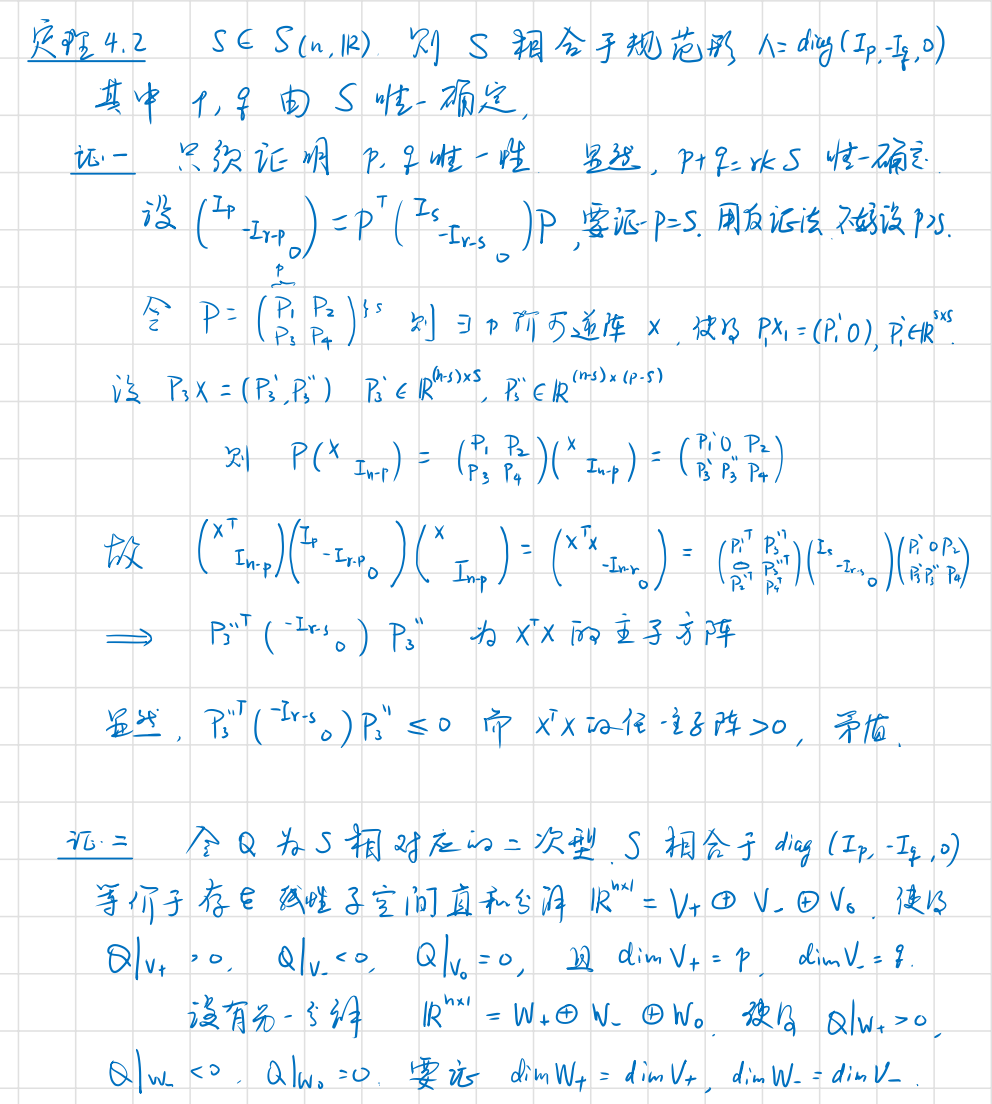 定理 4.2 S ∈ S(n, ℝ) 则 S 相合于规范形 Λ = diag(I_p, -I_q, 0)
其中 p, q 由 S 唯一确定,
证一 只须证明 p, q 唯一性. 显然, p+q = rk S 唯一确定.
设 (I_p -I_{r-p} 0) = P^T (I_s -I_{r-s} 0) P, 要证 p=s. 用反证法 不妨设 p>s.
令 P = (P_1 P_2 P_3 P_4) }s 则 ∃ p 阶可逆阵 X, 使得 P_1X_1 = (P_1' 0), P_1' ∈ ℝ^{s×s}.
设 P_3X = (P_3', P_3'') P_3' ∈ ℝ^{(n-s)×s}, P_3'' ∈ ℝ^{(n-s)×(p-s)}
则 P(X I_{n-p}) = (P_1 P_2 P_3 P_4)(X I_{n-p}) = (P_1' 0 P_2 P_3' P_3'' P_4)
故 (X^T I_{n-p})(I_p -I_{r-p} 0)(X I_{n-p}) = (X^TX -I_{n-r} 0) = (P_1'^T P_3'^T 0 P_3''^T P_2^T P_4^T)(I_s -I_{r-s} 0)(P_1' 0 P_2 P_3' P_3'' P_4)
⟹ P_3''^T (-I_{r-s} 0) P_3'' 为 X^TX 的主子方阵
显然, P_3''^T (-I_{r-s} 0) P_3'' ≤ 0 而 X^TX 的任一主子阵 > 0, 矛盾.
证二 令 Q 为 S 相对应的二次型. S 相合于 diag (I_p, -I_q, 0)
等价于存在线性子空间直和分解 ℝ^{n×1} = V_+ ⊕ V_- ⊕ V_0. 使得
Q|_{V_+} > 0, Q|_{V_-} < 0, Q|_{V_0} = 0, 且 dim V_+ = p, dim V_- = q.
设有另一分解 ℝ^{n×1} = W_+ ⊕ W_- ⊕ W_0. 使得 Q|_{W_+} > 0,
Q|_{W_-} < 0, Q|_{W_0} = 0. 要证 dim W_+ = dim V_+, dim W_- = dim V_-.